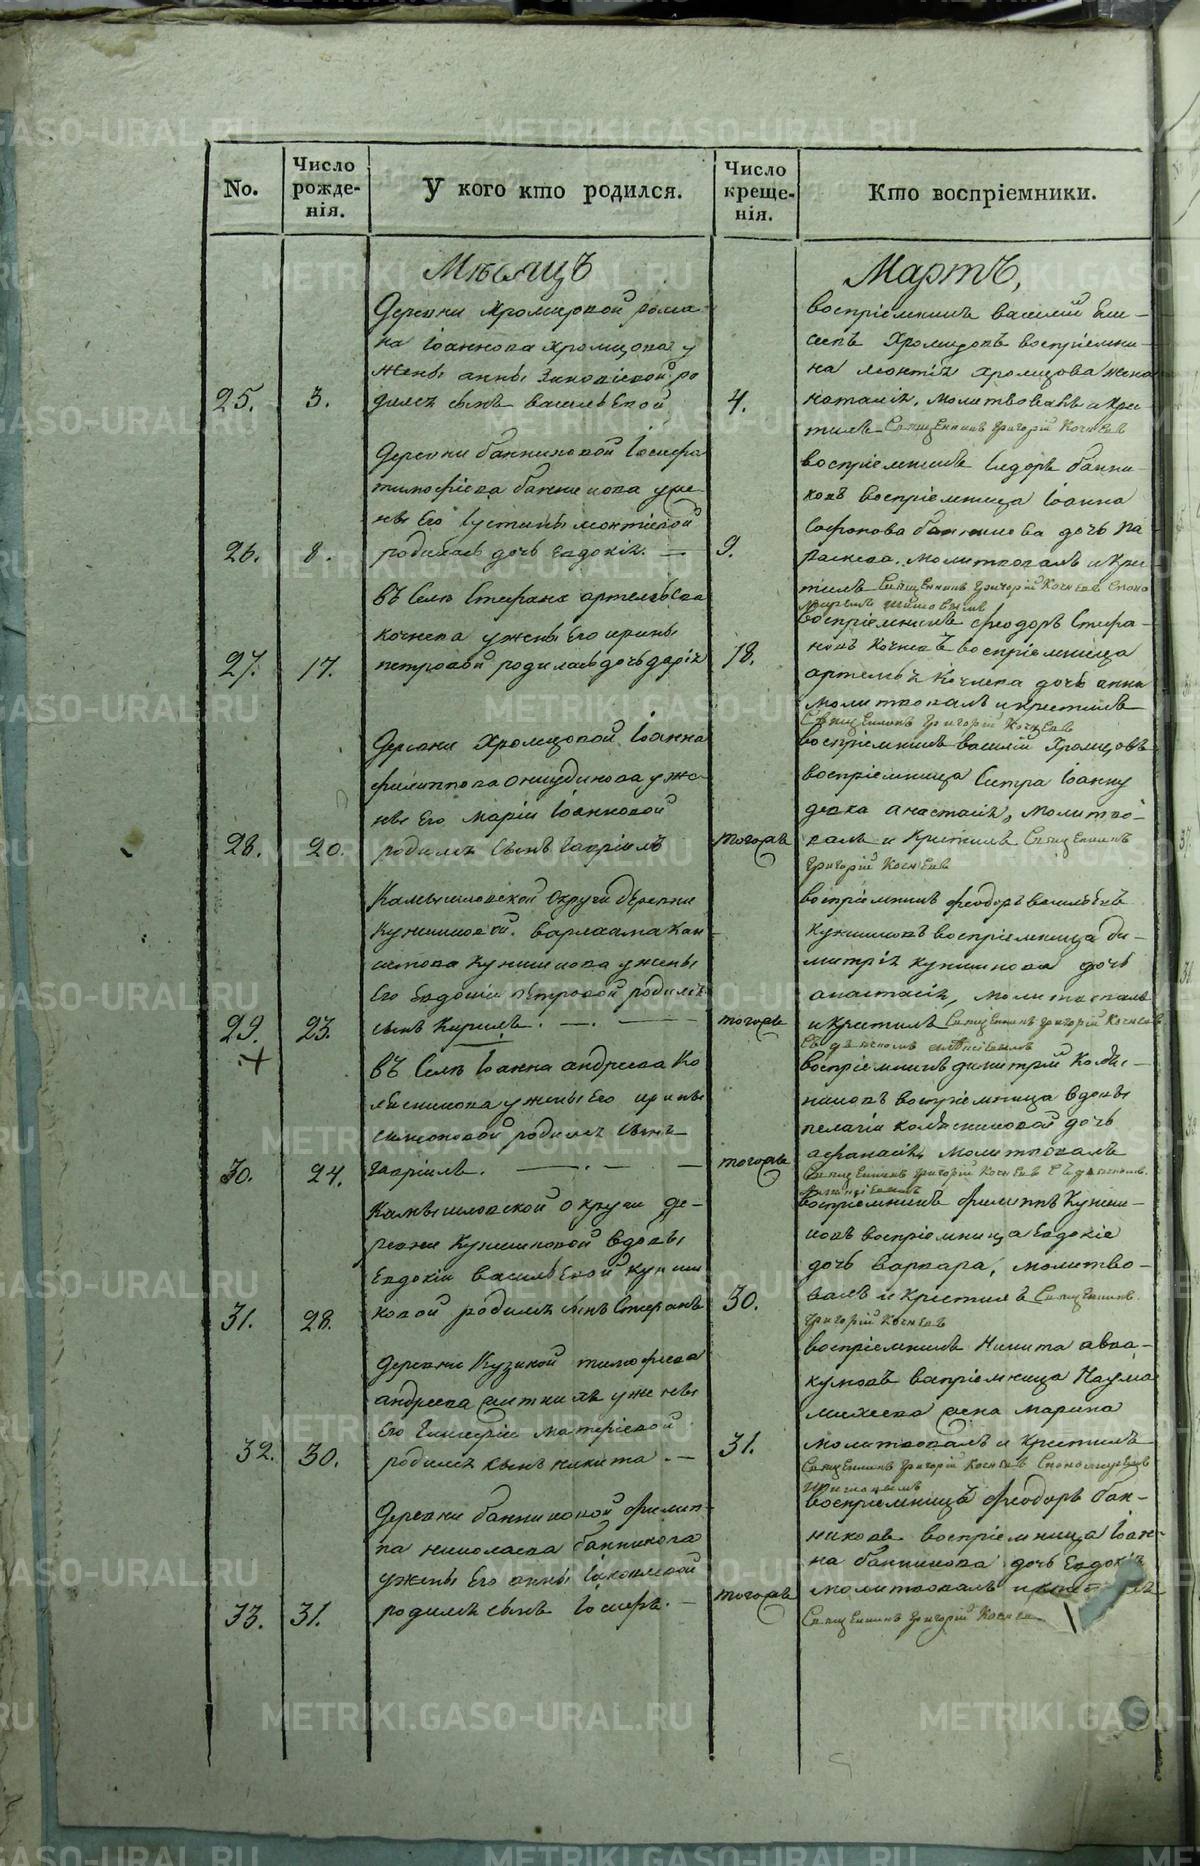 No.
Число рожде- нія.
У кого кто родился.
Число креще- нія.
Кто воспріемники.
Мѣсяцъ
Мартъ,
25.
3.
Деревни Хромцовой рома-
на Іоаннова Хромцова у
жены анны Зиновіевой ро
дился сынъ василь
4.
воспріемникъ василій
Хромцовъ воспріемни-
на леонтія хромцова жена
наталія, молитвовалъ и кре-
тилъ Священникъ Григорій Кочневъ
26.
8.
Деревни банниковой Іосифа
тимофѣева банникова у же-
ны Его Іустины леонтіевой
родилась дочь евдокія. —
9.
воспріемникъ Сидоръ банни-
ковъ воспріемница Іоанна
Сафонова банникова дочь па-
раскева, молитвовалъ и кре-
тилъ Священникъ Григорій Кочневъ Споно
маремъ
27.
17.
въ Селѣ Стефана артемьева
кочнева у жены Его ирины
петровой родилась дочь дарія
18.
воспріемникъ феодоръ Стефа-
новъ Кочневъ воспріемница
артемья Кочнева дочь анна
молитвовалъ и крестилъ
Священникъ Григорій Кочневъ
28.
20.
Деревни Хромцовой Іоанна
филиппова онцудинова у же-
ны Его маріи Іоанновой
родился Сынъ гавріилъ
тогожъ
воспріемникъ василій Хромцовъ
воспріемница Іоанну
девка анастасія, молитво-
валъ и крестилъ Священникъ
Григорій Кочневъ
29.
23.
Камышловской Округи деревни
Куншиковой. варлаама
Куншикова у жены
Его Евдокіи петровой родился
сынъ Кирилъ. —. —
тогожъ
воспріемникъ феодоръ васильевъ
Куншиковъ воспріемница ди-
митрія куншикова дочь
анастасія, молитвовалъ
и крестилъ Священникъ Григорій Кочневъ
30.
24.
въ Селѣ Іоанна андреева Ко
лѣсникова у жены Его ирины
симеоновой родился сынъ
гавріилъ. —.—
тогожъ
воспріемникъ димитрій Колѣс-
никовъ воспріемница вдовы
пелагіи колѣсниковой дочь
афанасія, молитвовалъ
Священникъ Григорій Кочневъ Съ діакономъ
31.
28.
Камышловской округи де-
ревни Куншиковой вдовы
Евдокіи васильевой кунши
ковой родился сынъ Стефанъ
30.
воспріемникъ филиппъ Кунши-
ковъ воспріемница Евдокіе
дочь варвара, молитво-
валъ и крестилъ Священникъ
Григорій Кочневъ
32.
30.
деревни Кузиной тимофеева
андреева у жены
Его
родился сынъ никита. —
31.
воспріемникъ Никита авва-
кумовъ воспріемница Наума
михеева жена марина
молитвовалъ и крестилъ
Священникъ Григорій Кочневъ Спономаремъ
33.
31.
Деревни банниковой филип-
па николаева банникова
у жены Его анны Іаковлевой
родился сынъ Іосифъ. —
тогожъ
воспріемникъ феодоръ бан-
никовъ воспріемница Іоан-
на банникова дочь Евдокія
молитвовалъ и
Священникъ Григорій
METRIKI.GASO-URAL.RU